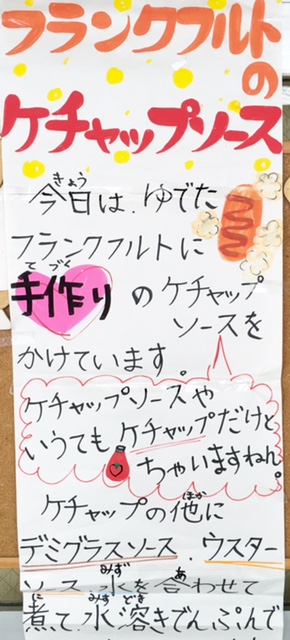 フランクフルト
の
ケチャップソース
今日は、ゆでた
フランクフルトに
手作り の ケチャップ
ソースを
かけています。
ケチャップソースや
いうても ケチャップだけと
ちゃいますねん。
ケチャップの他に
デミグラスソース、ウスター
ソース、水を合わせて
煮て、水溶きでんぷんで